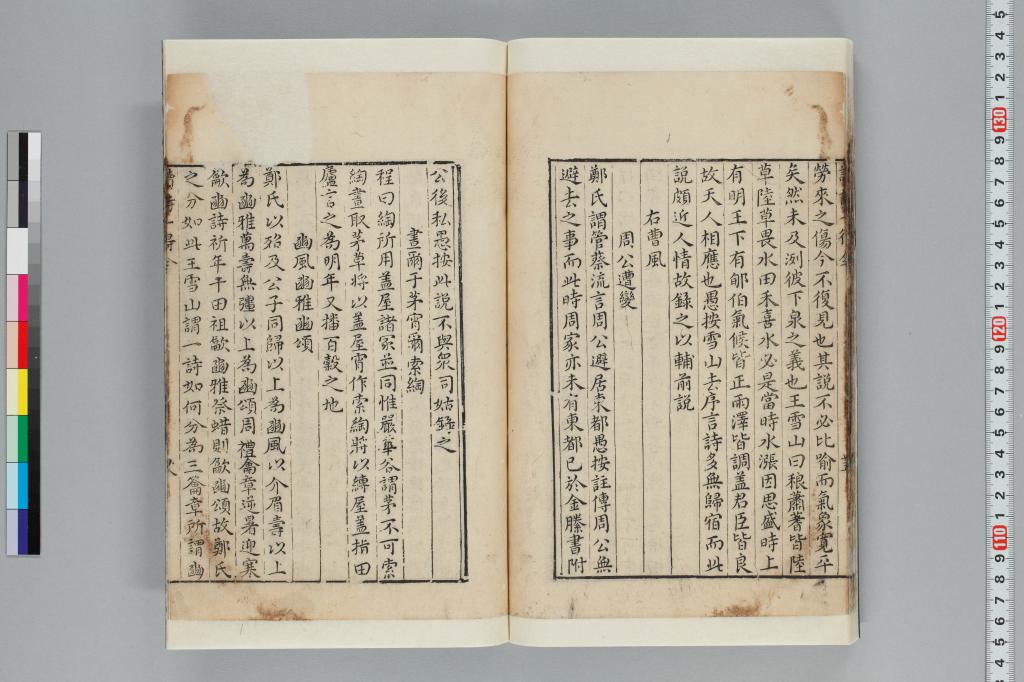 勞來之傷今不復見也其說不必比喻而氣象寛平
矣然未及洌彼下泉之義也王雪山曰稂蕭蓍皆陸
草陸草畏水田禾喜水必是當時水漲因思盛時上
有明王下有郇伯氣候皆正雨澤皆調盖君臣皆良
故天人相應也愚按雪山去序言詩多無歸宿而此
說頗近人情故録之以輔前說
右曹風
周公遭變
鄭氏謂管蔡流言周公避居東都愚按註傳周公無
避去之事而此時周家亦未有東都已於金縢書附
公後私愚按此說不與衆同姑録之
晝爾于茅宵爾索綯
程曰綯所用盖屋諸家並同惟嚴華谷謂茅不可索
綯晝取茅草將以盖屋宵作索綯將以縳屋盖指田
廬言之為明年又播百穀之地
豳風豳雅豳頌
鄭氏以殆及公子同歸以上為豳風以介眉壽以上
為豳雅萬壽無彊以上為豳頌周禮籥章逆暑迎寒
龡豳詩祈年于田祖龡豳雅祭蜡則龡豳頌故鄭氏
之分如此王雪山謂一詩如何分為三籥章所謂豳